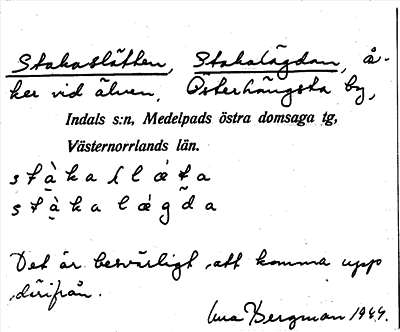 Stakaslåtten, Stakalägdan, å-
ker vid älven, Österhångsta by,
Indals s:n, Medelpads östra domsaga tg,
Västernorrlands län.
Det är besvärligt att komma upp
därifrån.
Bergman 1944.